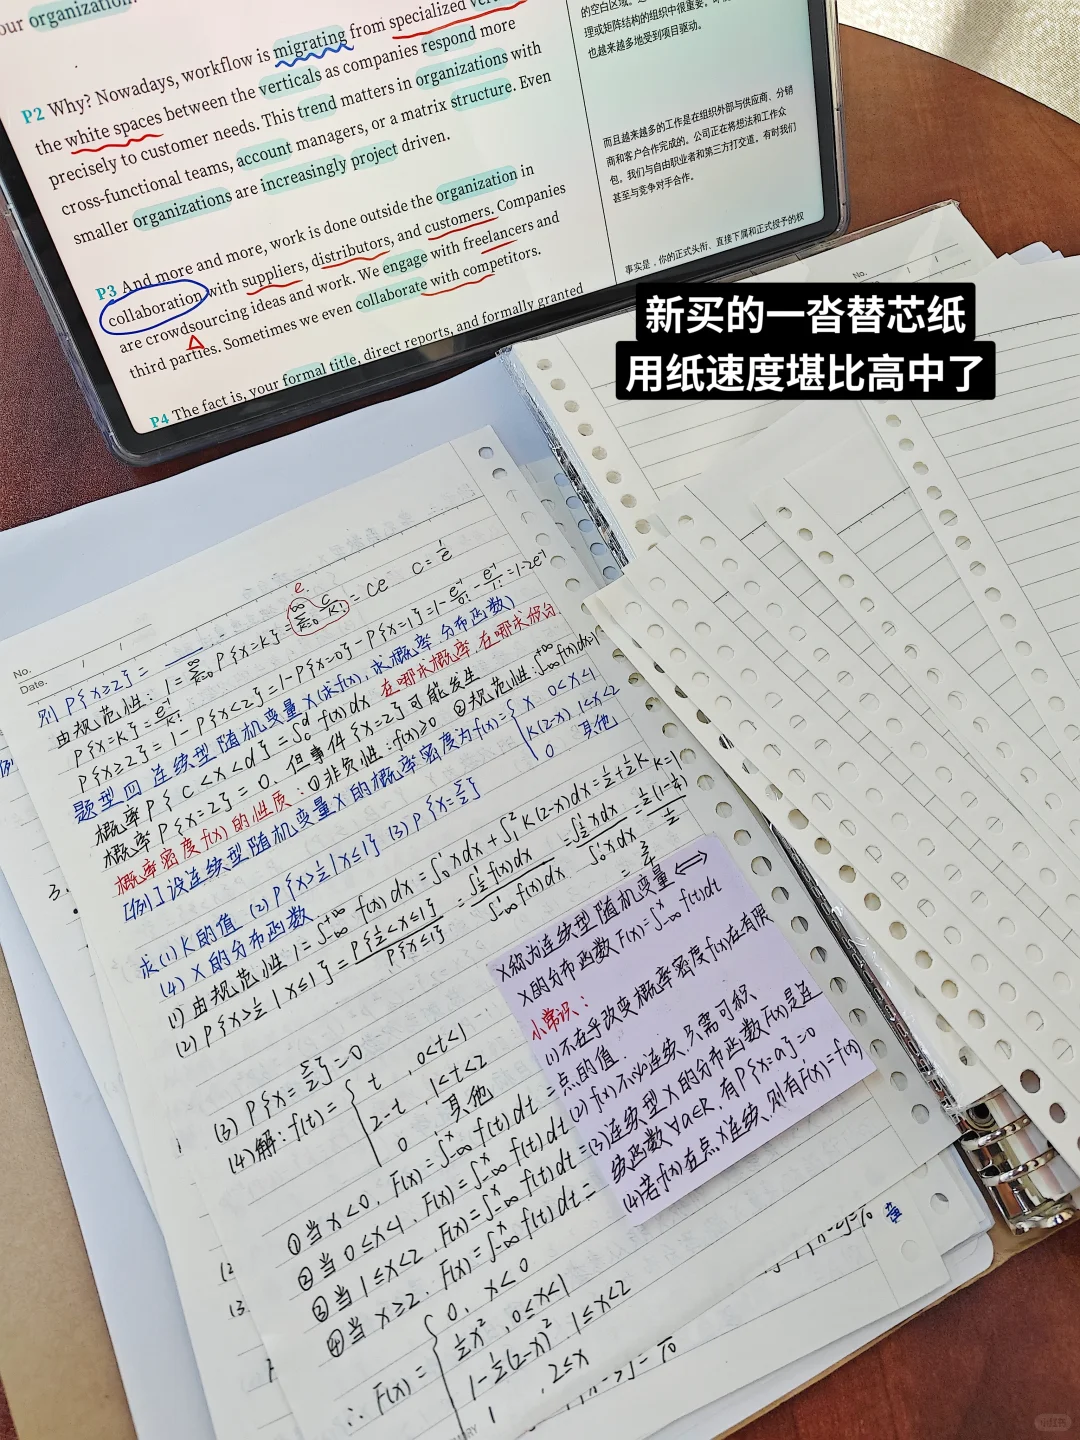 our organization.
P2 Why? Nowadays, workflow is migrating from specialized
the white spaces between the verticals as companies respond more
precisely to customer needs. This trend matters in organizations with
cross-functional teams, account managers, or a matrix structure. Even
smaller organizations are increasingly project driven.
P3 And more and more, work is done outside the organization in
collaboration with suppliers, distributors, and customers. Companies
are crowdsourcing ideas and work. We engage with freelancers and
third parties. Sometimes we even collaborate with competitors.
P4 The fact is, your formal title, direct reports, and formally granted
的空白区域。
理或矩阵结构的组织中很重要。
也越来越多地受到项目驱动。
而且越来越多的工作是在组织外部与供应商、分销
商和客户合作完成的。公司正在将想法和工作众
包。我们与自由职业者和第三方打交道。有时我们
甚至与竞争对手合作。
事实是，你的正式头衔、直接下属和正式授予的权
新买的一沓替芯纸
用纸速度堪比高中了
No.
No.
Date.
e
则 P{X≥2} =
由规范性: 1 = ∑_{k=0}^{∞} P{X=k} = ∑_{k=0}^{∞} c/k! = ce   c = 1/e
P{X=k} = e⁻¹/k!
P{X≥2} = 1 - P{X<2} = 1 - P{X=0} - P{X=1} = 1 - e⁻¹/0! - e⁻¹/1! = 1-2e⁻¹
题型四 连续型随机变量X(求f(x), 求概率, 分布函数)
概率 P{c<X<d} = ∫_c^d f(x)dx 在哪求概率,在哪求积分
概率 P{X=2} = 0, 但事件{X=2}可能发生
概率密度f(x)的性质: ①非负性: f(x)≥0 ②规范性: ∫_{-∞}^{+∞} f(x)dx=1
[例] 设连续型随机变量X的概率密度为f(x) = { x 0<x<1
K(2-x) 1<x<2
0 其他
求(1) K的值 (2) P{X>½|X≤1} (3) P{X=
(4) X的分布函数
(1) 由规范性 1 = ∫_{-∞}^{+∞} f(x)dx = ∫_0^1 xdx + ∫_1^2 K(2-x)dx = ½+½K K=1
(2) P{X>½|X≤1} = P{½<X≤1}/P{X≤1} = ∫_{½}^1 f(x)dx / ∫_{-∞}^1 f(x)dx = ∫_{½}^1 xdx / ∫_0^1 xdx = ½(1-¼)/½ = ¾
=0
(4) 解: f(t) = { t , 0<t<1
2-t , 1<t<2
0 , 其他
①当 x<0, F(x) = ∫_{-∞}^x f(t)dt =
②当 0≤x<1, F(x) = ∫_{-∞}^x f(t)dt
③当 1≤x<2, F(x) = ∫_{-∞}^x f(t)dt =
④当 x≥2, F(x) = ∫_{-∞}^x f(t)dt =
∴ F(x) = { 0, x<0
½x², 0≤x<1
1-½(2-x)², 1≤x<2
1 , 2≤x
X称为连续型随机变量 ⟺
X的分布函数 F(x) = ∫_{-∞}^x f(t)dt
小常识:
(1) 不在乎改变概率密度f(x)在有限
点的值.
(2) f(x)不必连续,只需可积.
(3) 连续型X的分布函数F(x)是连
续函数 ∀a∈R, 有P{X=a}=0
(4) 若f(x)在点x连续,则有F'(x)=f(x)
3.
小红书